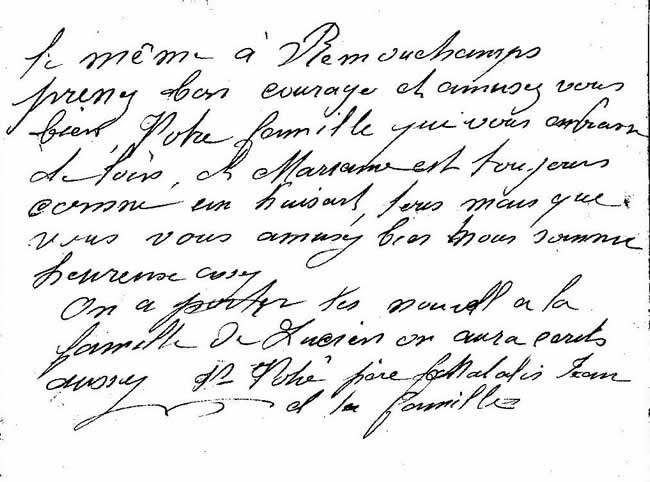 même à Remouchamps
prenez bon courage et amusez vous
bien, Votre famille qui vous embrasse
de loin, et Marianne est toujours
comme un mais que
vous vous amusez bien nous somme
heureuse aussy
On a porter les nouvell a la
famille de Lucien on aura écrits
aussy Votre père Jean
et la famille